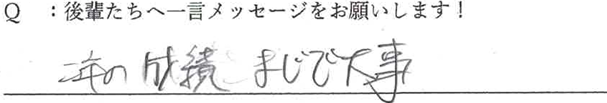 Q ：後輩たちへ一言メッセージをお願いします！
二年の成績 まじで大事